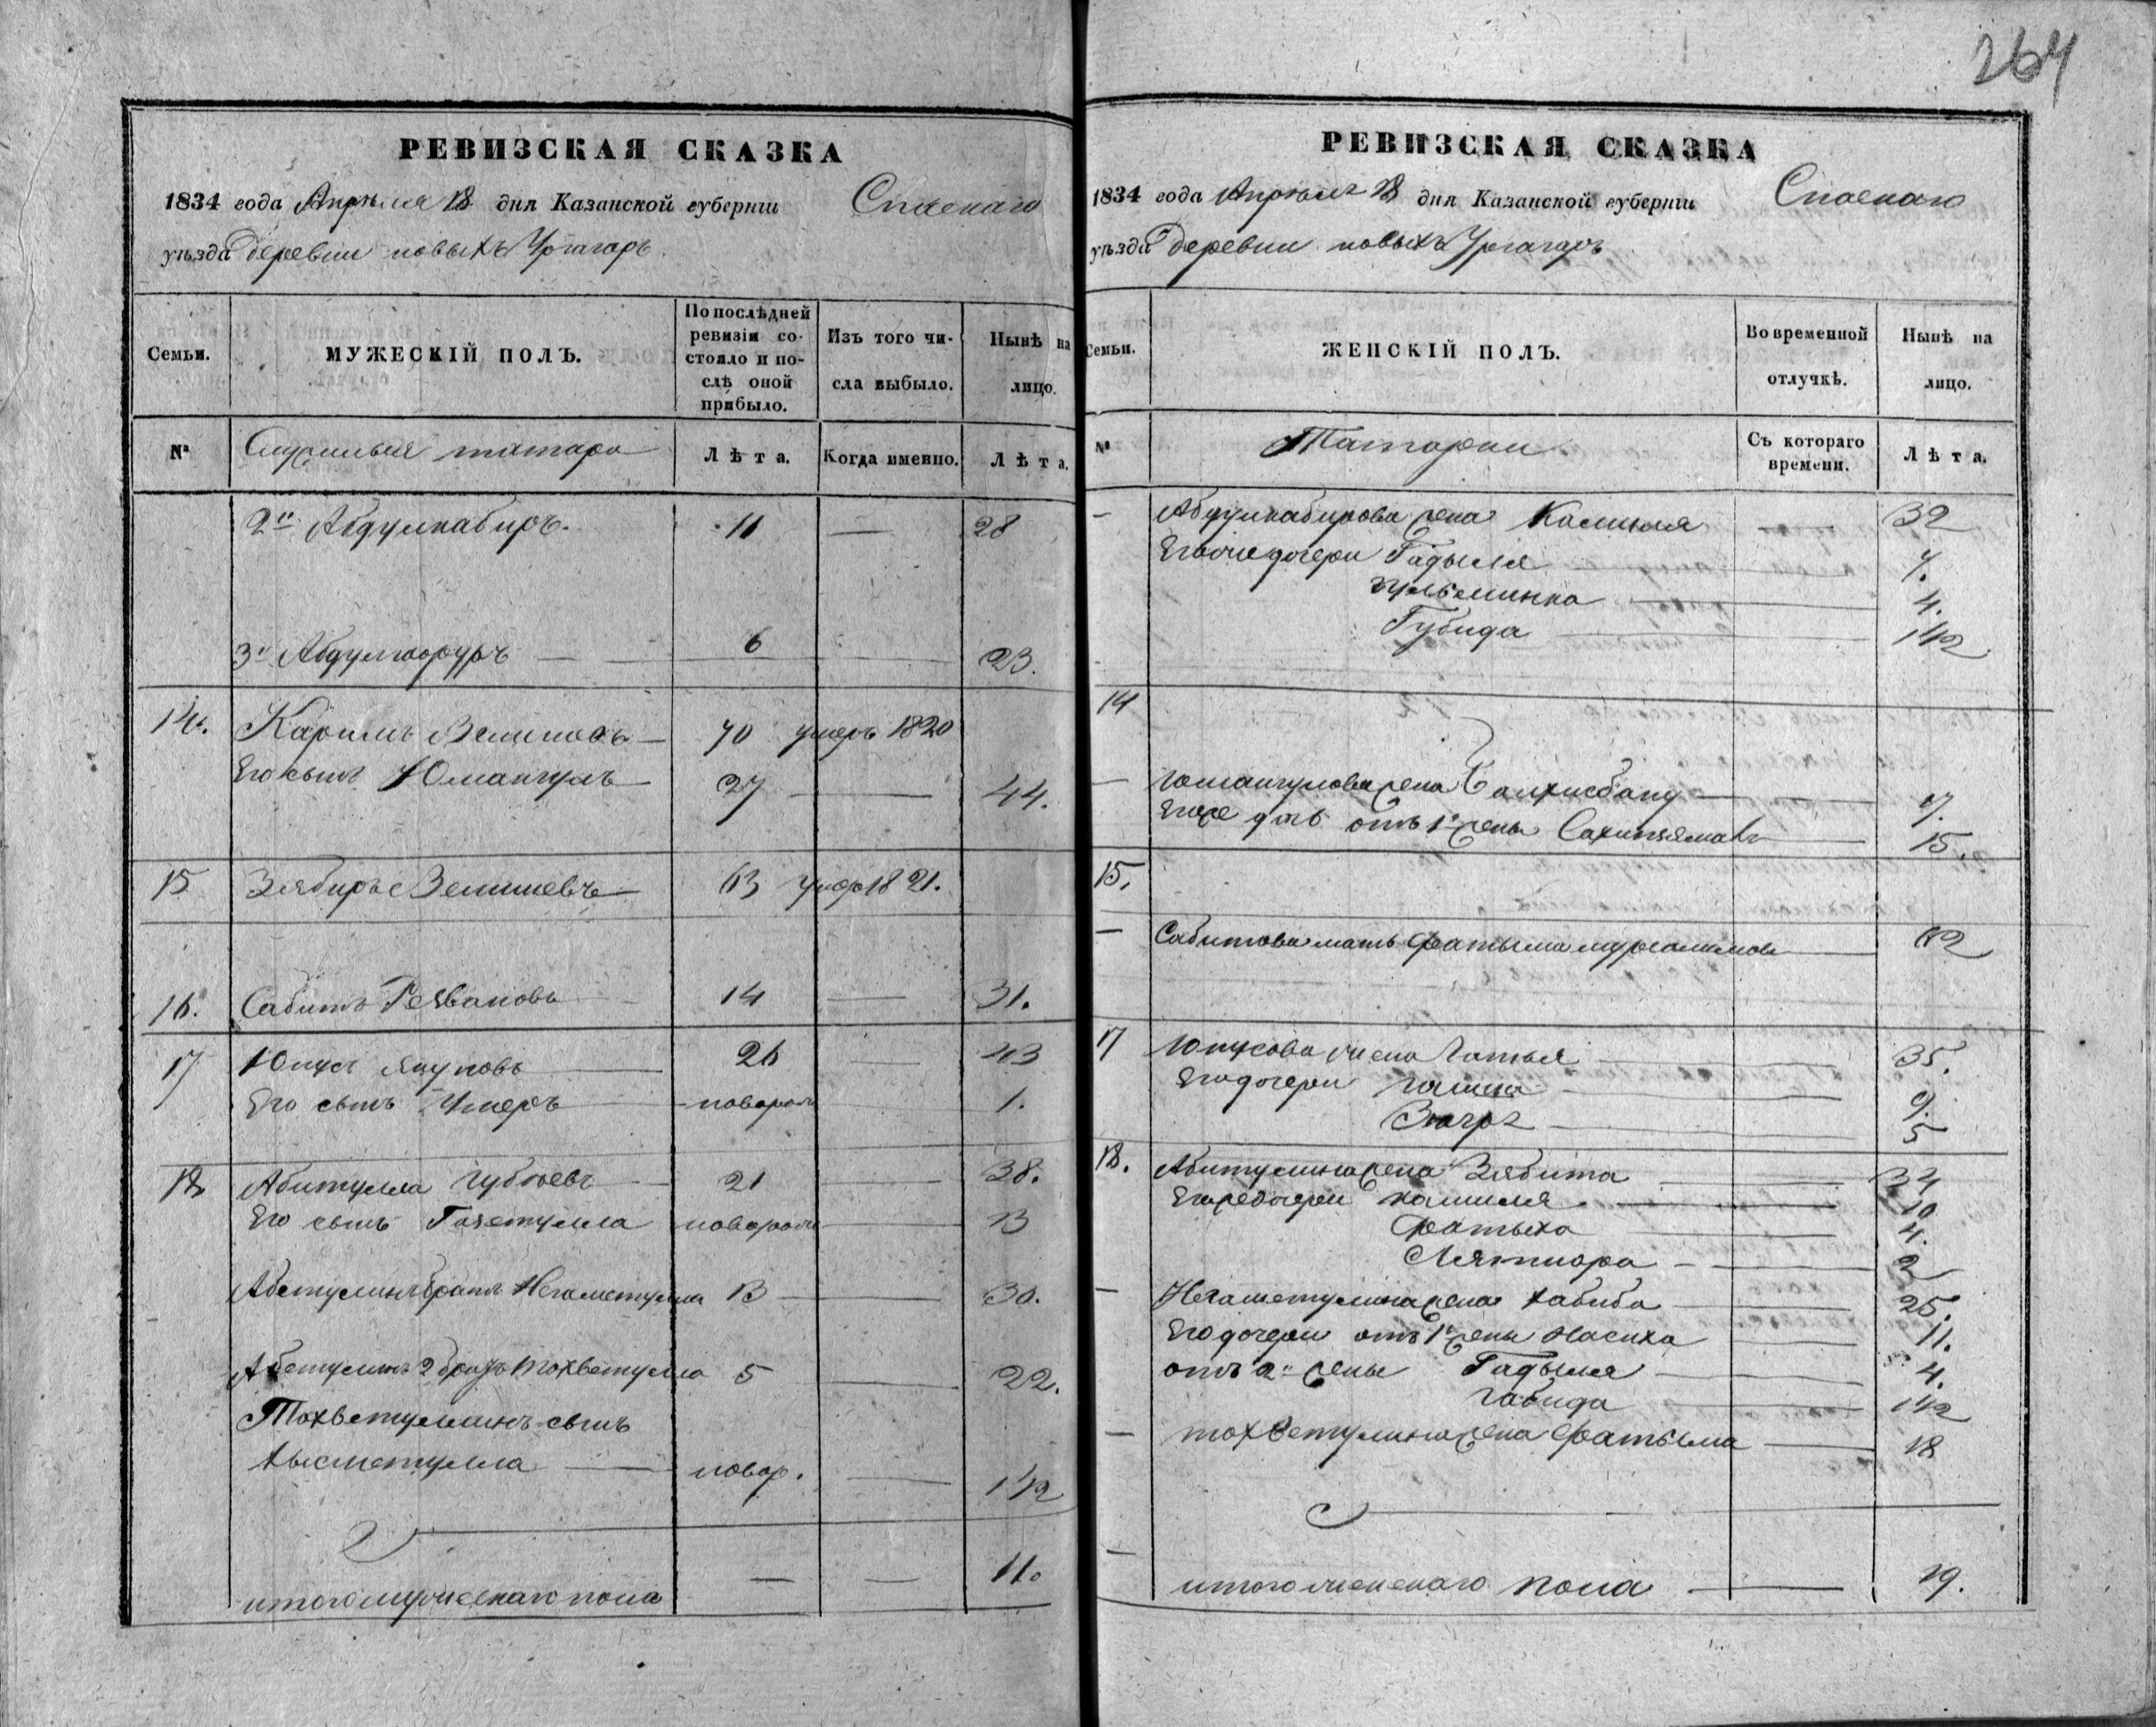 264
РЕВИЗСКАЯ СКАЗКА
1834 года Апреля 18 дня Казанской губерніи Спаскаго
уѣзда деревни новыхъ Ургагаръ
Семьи.
МУЖЕСКІЙ ПОЛЪ.
По послѣдней ревизіи со-
стояло и по-
слѣ оной
прибыло.
Изъ того чи-
сла выбыло.
Нынѣ на
лицо.
№
татара
Лѣта.
Когда именно.
Лѣта.
2й Абдулкабиръ. 11 — 28
3й 6 — 23.
14. Каримъ 70 умеръ 1820
Его сынъ Юмангулъ 27 — 44.
15 Зябиръ 63 умер 1821.
16. Сабитъ Резвановъ 14 — 31.
17 Юнусъ Якуповъ 26 — 43
Его сынъ Умеръ — новорож 1.
18 Абитулла Губеевъ 21 — 38.
Его сынъ новорож — 13
братъ Негаметулла 13 — 30.
2 братъ Тохветулла 5 — 22.
Тохветуллинъ сынъ
новор. — 1/2
итого мужескаго пола — — 11.
РЕВИЗСКАЯ СКАЗКА
1834 года Апреля 18 дня Казанской губерніи Спаскаго
уѣзда деревни новыхъ Ургагаръ
Семьи.
ЖЕНСКІЙ ПОЛЪ.
Во временной
отлучкѣ.
Нынѣ на
лицо.
№
Татарки
Съ котораго
времени.
Лѣта.
— Абдулкабирова жена Камиля — 32
Его же дочери Гадыля — 7.
— 4.
Губида — 1/2
14
— Юмангулова жена
Его же дчь отъ 1й жены — 15.
15.
— Сабитова мать Фатыма — 62
17 Юнусова жена — 35.
Его дочери — 9.
— 5
18. Абитуллина жена Зябита — 34
Его же дочери Камиля — 10
Фатыха — 4.
— 2
— Негаметуллина жена Хабиба — 25.
Его дочери отъ 1й жены Насиха — 11.
отъ 2й жены Гадыля — 4.
Габида — 1/2
— Тохветуллина жена Фатыма — 18
— итого женскаго пола — 19.